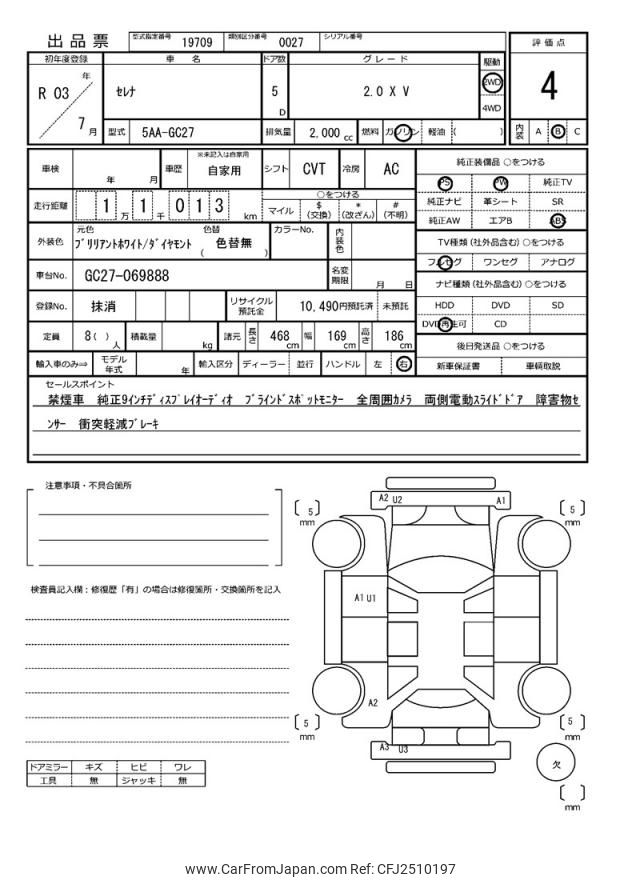 出品票 型式指定番号 19709 類別区分番号 0027 シリアル番号
初年度登録 車名 ドア数 グレード 駆動 評価点
R 03 年 7 月 ｾﾚﾅ 5 D 2.0 X V 2WD 4WD 4
型式 5AA-GC27 排気量 2,000 cc 燃料 ガソリン 軽油 ( ) 内装 A B C
車検 年 月 車歴 ※未記入は自家用 自家用 シフト CVT 冷房 AC 純正装備品 ○をつける
PS PW 純正TV
走行距離 1 万 1 千 0 1 3 km ○をつける
マイル $(交換) *(改ざん) #(不明)
純正ナビ 革シート SR
純正AW エアB ABS
外装色 元色 ﾌﾞﾘﾘｱﾝﾄﾎﾜｲﾄ/ﾀﾞｲﾔﾓﾝﾄ 色替 ( 色替無 ) カラーNo. 内装色
TV種類 (社外品含む) ○をつける
フルセグ ワンセグ アナログ
車台No. GC27-069888 名変期限 月 日
ナビ種類 (社外品含む) ○をつける
登録No. 抹消 リサイクル預託金 10,490円預託済 未預託
HDD DVD SD
DVD再生可 CD
定員 8 ( ) 人 積載量 kg 諸元 長さ 468 cm 幅 169 cm 高さ 186 cm
後日発送品 ○をつける
輸入車のみ⇒ モデル年式 年 輸入区分 ディーラー 並行 ハンドル 左 右
新車保証書 車輌取説
セールスポイント
禁煙車 純正9ｲﾝﾁﾃﾞｨｽﾌﾟﾚｲｵｰﾃﾞｨｵ ﾌﾞﾗｲﾝﾄﾞｽﾎﾟｯﾄﾓﾆﾀｰ 全周囲ｶﾒﾗ 両側電動ｽﾗｲﾄﾞﾄﾞｱ 障害物ｾ
ﾝｻｰ 衝突軽減ﾌﾞﾚｰｷ
注意事項・不具合箇所
検査員記入欄：修復歴「有」の場合は修復箇所・交換箇所を記入
A2 U2 A1
[ 5 ] mm [ 5 ] mm
A1 U1
A2
[ 5 ] mm [ 5 ] mm
A3 U3
欠
[ ] mm
ドアミラー キズ ヒビ ワレ
工具 無 ジャッキ 無
www.CarFromJapan.com Ref: CFJ2510197